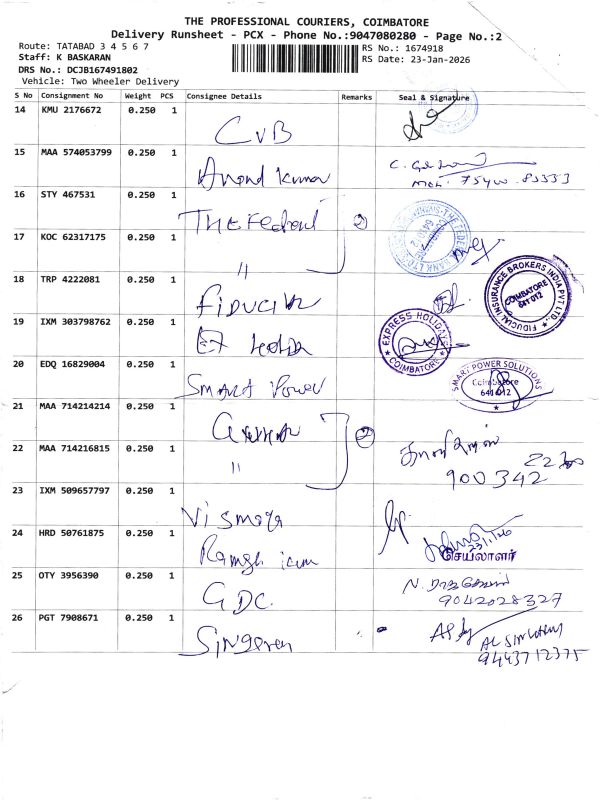 THE PROFESSIONAL COURIERS, COIMBATORE
Delivery Runsheet - PCX - Phone No.:9047080280 - Page No.:2
Route: TATABAD 3 4 5 6 7
RS No.: 1674918
Staff: K BASKARAN
RS Date: 23-Jan-2026
DRS No.: DCJB167491802
Vehicle: Two Wheeler Delivery
S No Consignment No Weight PCS Consignee Details Remarks Seal & Signature
14 KMU 2176672 0.250 1
CVB
15 MAA 574053799 0.250 1
Anand Kumar
16 STY 467531 0.250 1
The Federal 2
17 KOC 62317175 0.250 1
"
18 TRP 4222081 0.250 1
FIDUCIAL INSURANCE BROKERS INDIA PVT. LTD.
COIMBATORE
641 012
19 IXM 303798762 0.250 1
EXPRESS HOLIDAYS
COIMBATORE
20 EDQ 16829004 0.250 1
Smart Power
SMART POWER SOLUTIONS
Coimbatore
641 012
21 MAA 714214214 0.250 1
2
22 MAA 714216815 0.250 1
"
900342
23 IXM 509657797 0.250 1
Vismaya
24 HRD 50761875 0.250 1
செயலாளர்
25 OTY 3956390 0.250 1
GDC.
9042028327
26 PGT 7908671 0.250 1
9443712375